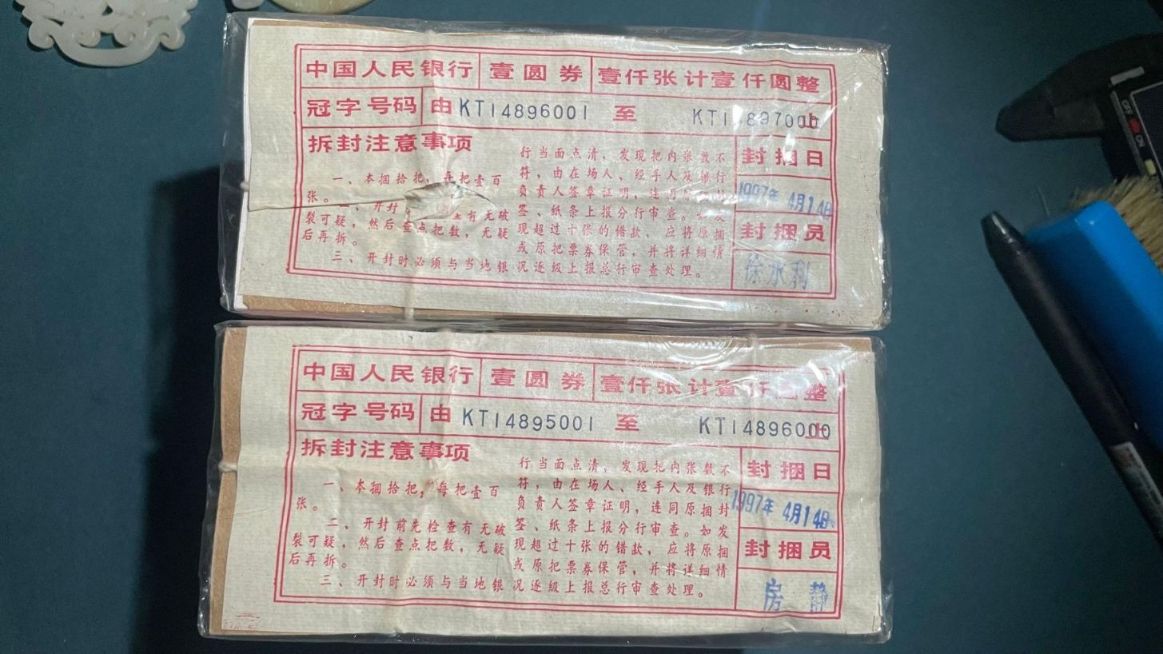 中国人民银行 壹圆券 壹仟张计壹仟圆整
冠字号码 由 KT14896001 至 KT14897000 止
拆封注意事项
一、本捆拾把，每把壹百
张。
二、开封 有无破
裂可疑，然后查点把数，无疑
后再拆。
三、开封时必须与当地银
行当面点清，发现把内张数不
符，由在场人、经手人及银行
负责人签章证明，连同原捆封
签、纸条上报分行审查。如发
现超过十张的错款，应将原捆
或原把票券保管，并将详细情
况逐级上报总行审查处理。
封捆日
1997年 4月14日
封捆员
徐永利
中国人民银行 壹圆券 壹仟张计壹仟圆整
冠字号码 由 KT14895001 至 KT14896000 止
拆封注意事项
一、本捆拾把，每把壹百
张。
二、开封前先检查有无破
裂可疑，然后查点把数，无疑
后再拆。
三、开封时必须与当地银
行当面点清，发现把内张数不
符，由在场人、经手人及银行
负责人签章证明，连同原捆封
签、纸条上报分行审查。如发
现超过十张的错款，应将原捆
或原把票券保管，并将详细情
况逐级上报总行审查处理。
封捆日
1997年 4月14日
封捆员
房 静
OFF
ON